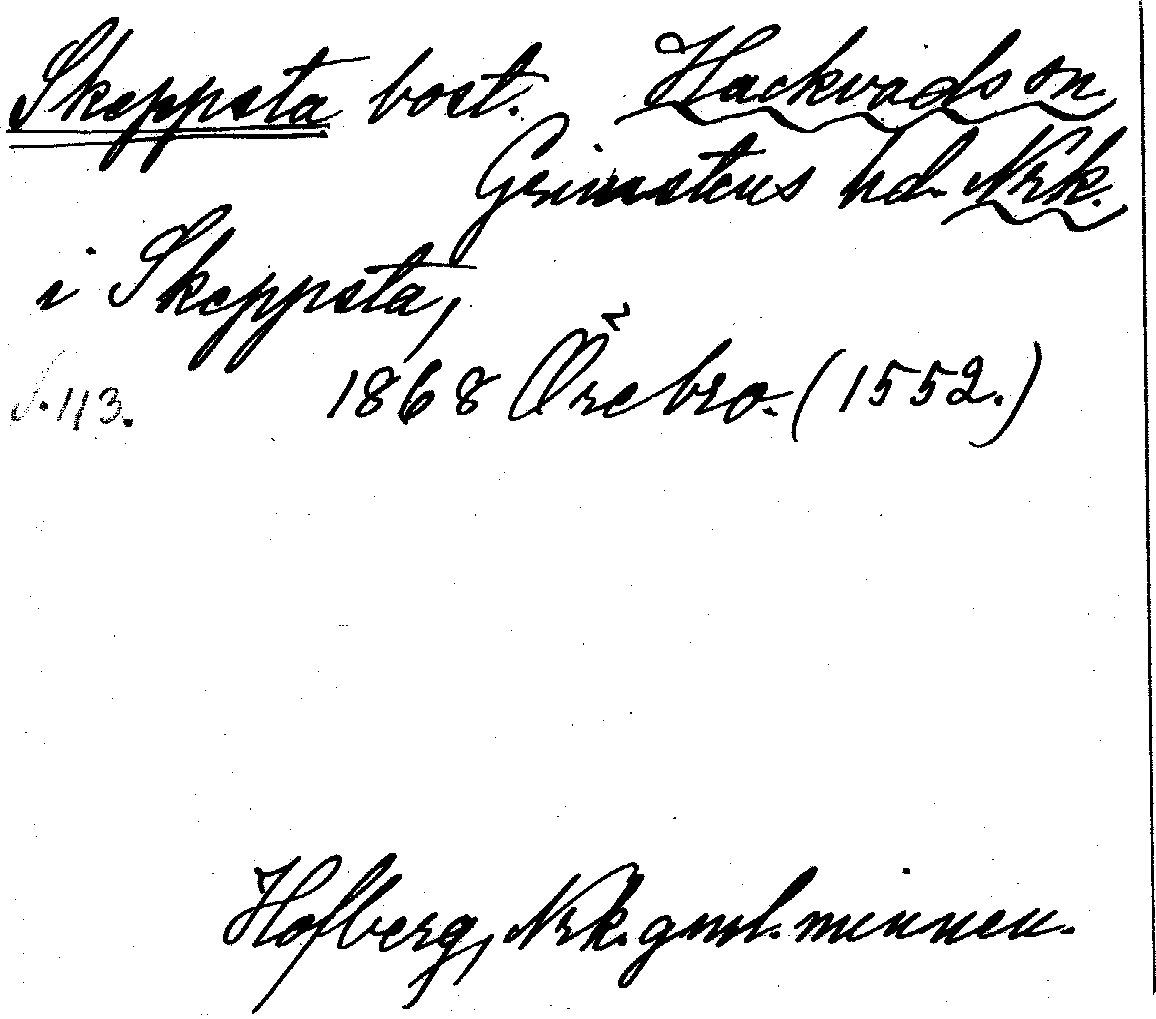 Skeppsta bost. Hackvads sn
Grimstens hd. Nrk.
i Skeppsta,
S. 113. 1868 Örebro. (1552.)
Hofberg, Nrk. gml. minnen.